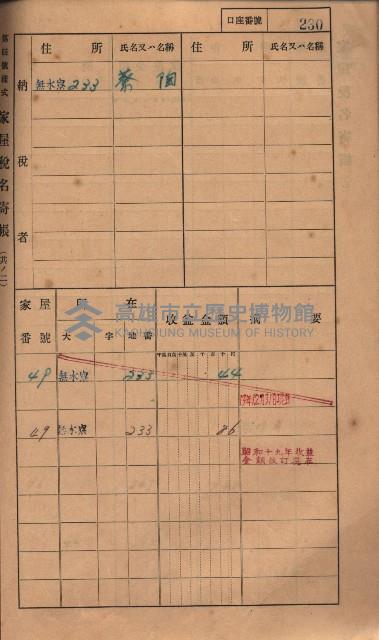 口座番號 230
第拾號樣式 家屋稅名寄帳 (共ノ二)
納稅者
住所 氏名又ハ名稱 住所 氏名又ハ名稱
無水寮 233 蔡
高雄市立歷史博物館
KAOHSIUNG MUSEUM OF HISTORY
家屋番號 所在 大字 地番 收益金額 摘要
49 無水寮 233 44
49 無水寮 233 86
昭和十九年收益
金額改訂